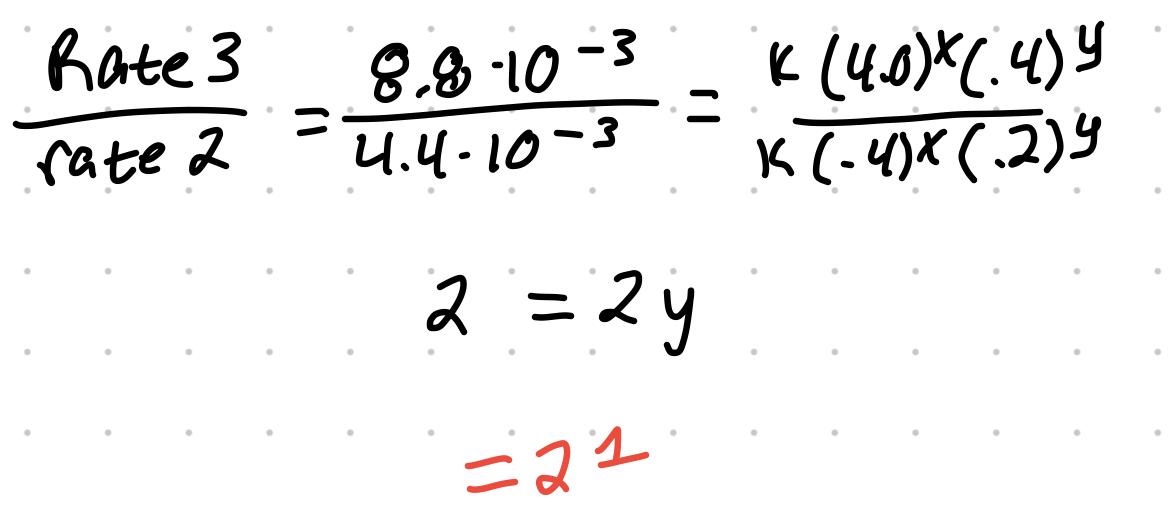 Rate 3 / rate 2 = 8.8 · 10⁻³ / 4.4 · 10⁻³ = K (4.0)ˣ (.4)ʸ / K (.4)ˣ (.2)ʸ
2 = 2 y
= 2¹